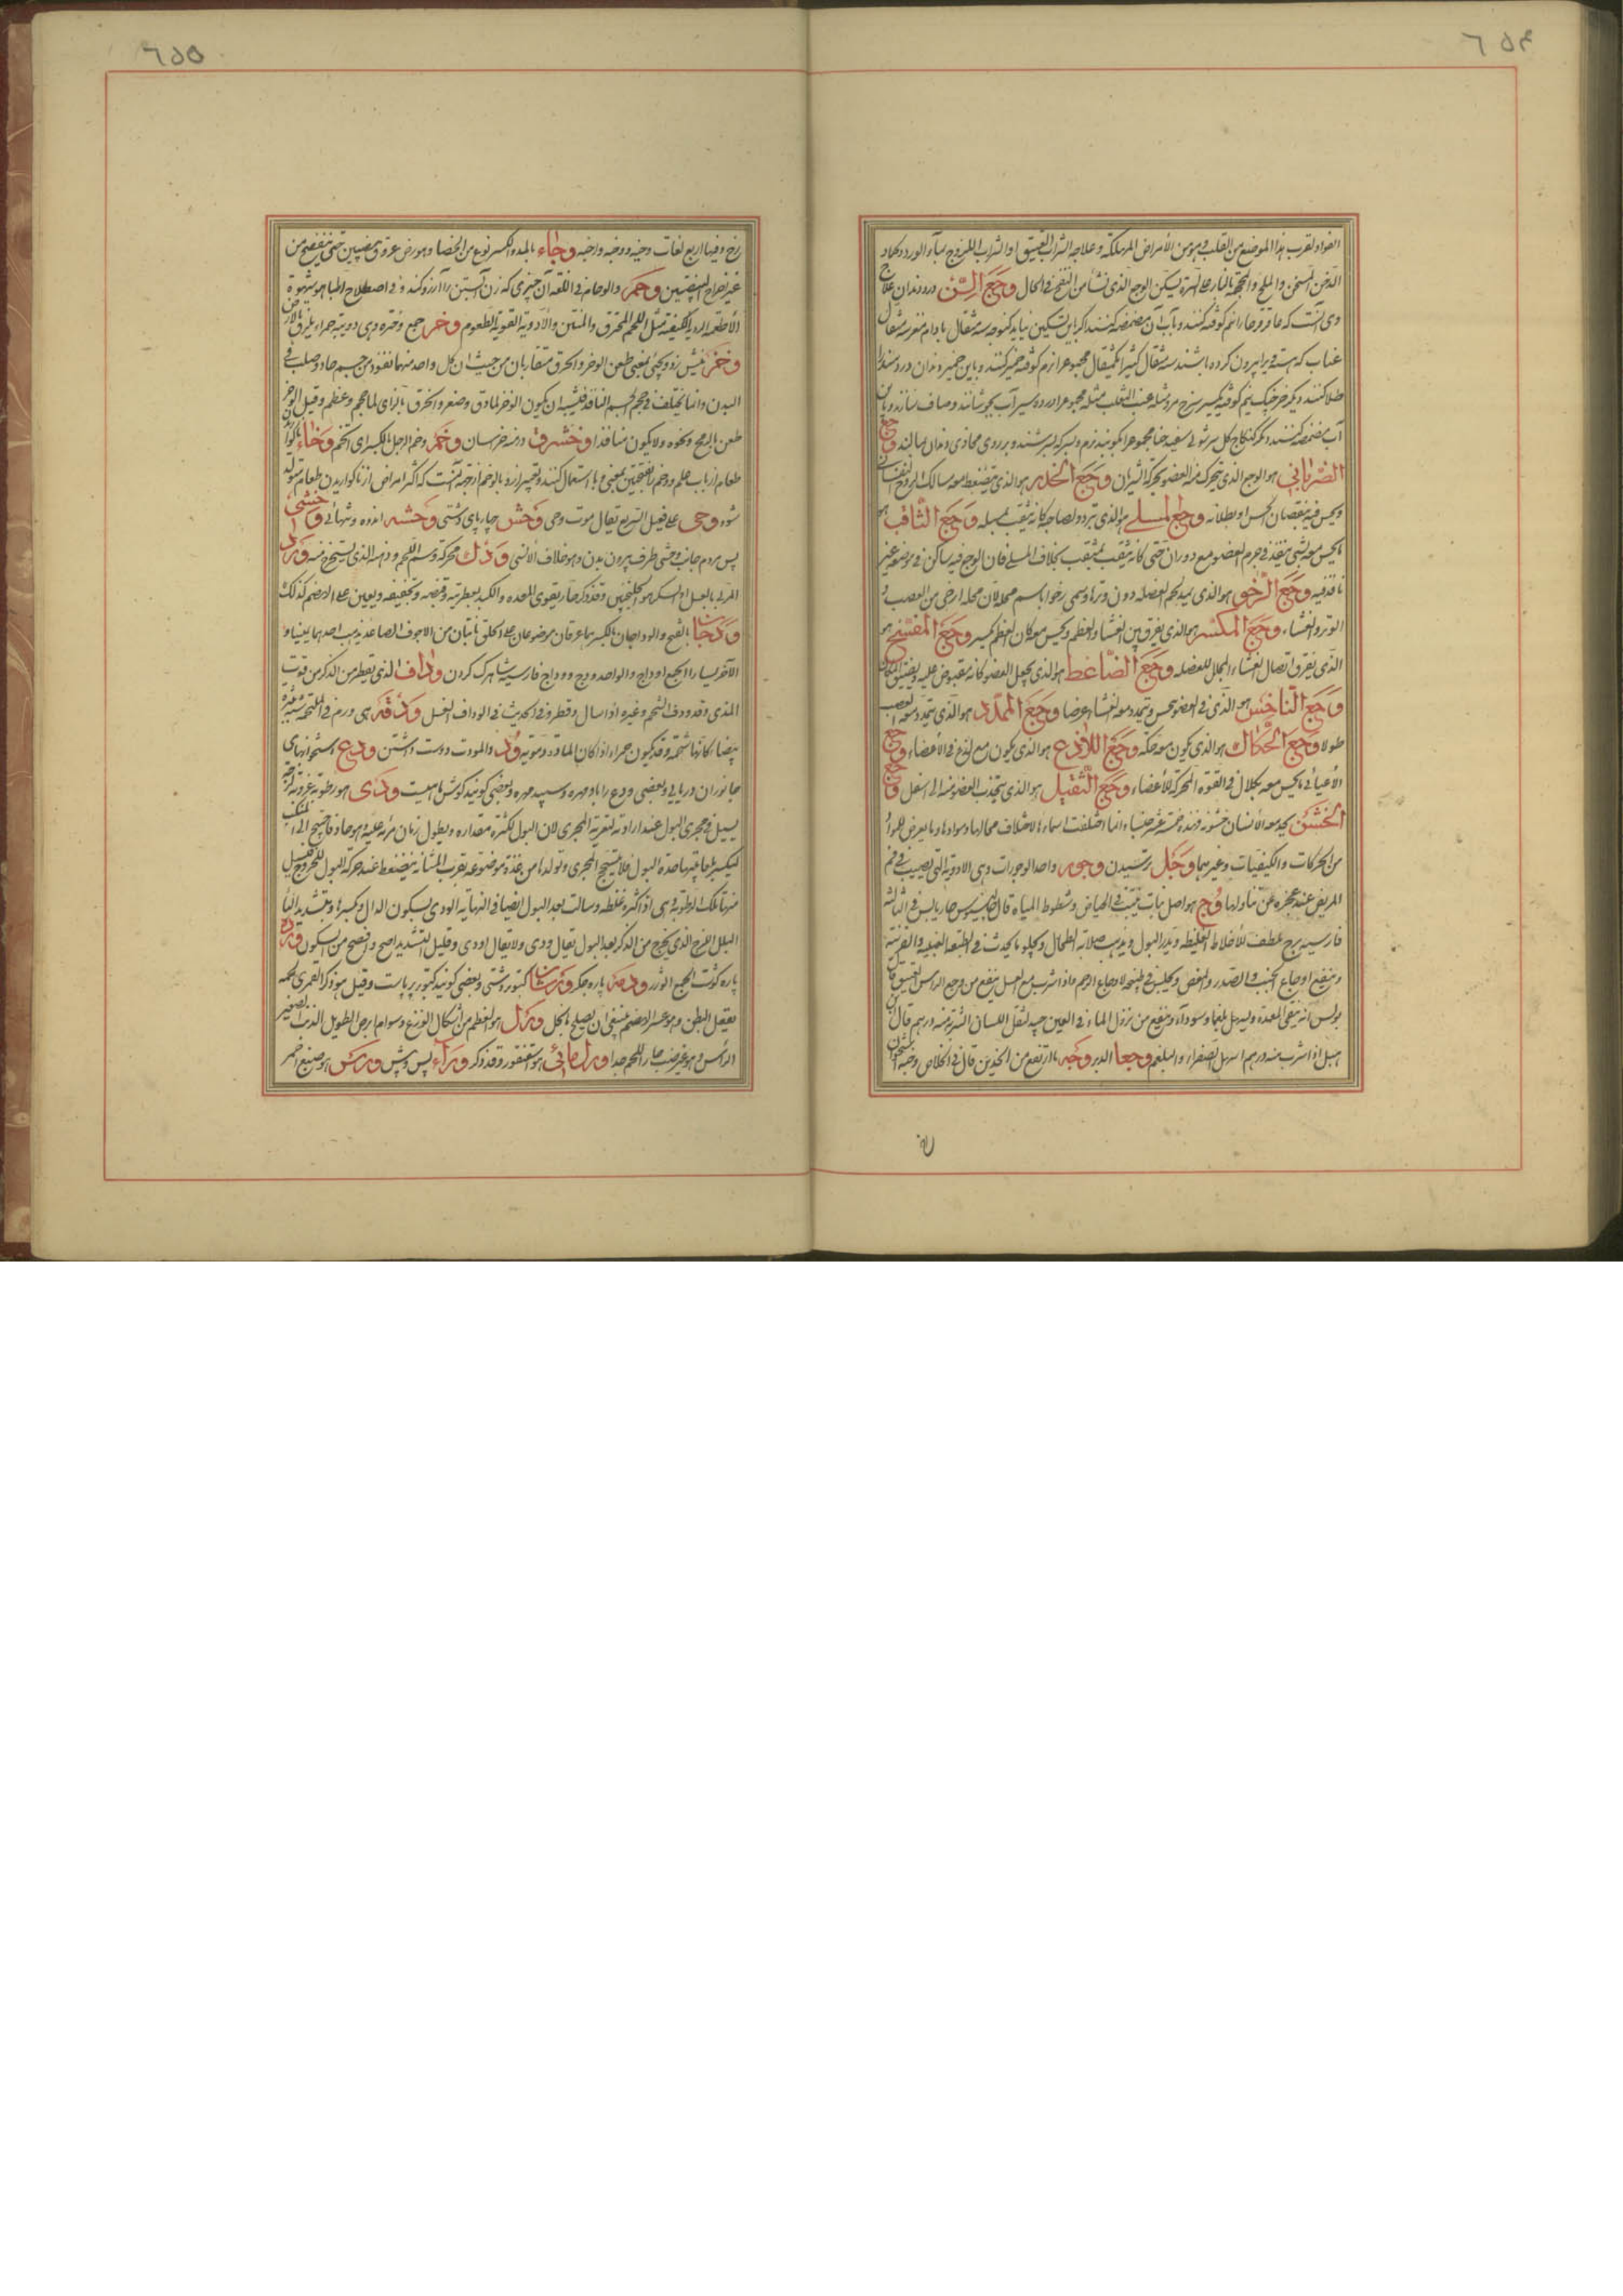 ٦٥۴
الفواد لقرب هذا الموضع من القلب و هو من الأمراض المهلكة و علاجه الشراب العتيق او الشراب الممزوج بماء الورد و كماد
الدخن المسخن و الملح و المحجمة بالنار على السرة يسكن الوجع الذى نشأ من النفخ فى الحال وجع السن درد دندان علاج
وى آنست كه عاقرقرحا را نيم كوفته كنند و بآب آن مضمضه كنند اگر باين تسكين نيابد كنوچه سه مثقال بادام مغز سه مثقال
عناب كه هسته ويرا بيرون كرده باشند سه مثقال كثيرا يكمثقال مجموعرا نرم كوفته خمير كنند و باين خمير دندان درد مند را
طلا كنند ديگر خرخبك نيم كوفته يكسير سرخ مرد مثله عنب الثعلب مثله مجموعرا در ده سير آب بجوشانند و صاف سازند و باين
آب مضمضه كنند ديگر كنكاج كل سرشوى سفيد حنا مجموعرا بكوبند نرم و بسركه بسرشند و بر روى محاذى دندان بمالند وجع
الضربانى هو الوجع الذى يتحرك منه العضو بحركة الشريان وجع الخدر هو الذى تضغط معه مسالك الروح النفسانى
و يحس فيه بنقصان الحس او بطلانه وجع المسلى هو الذى تردد لصاحبه كانه يثقب بمسله وجع الثاقب هو
ما يحس معه بشئ ينفذ فى جرم العضو مع دوران حتى كانه يثقب بمثقب بخلاف المسلى فان الوجع فيه ساكن فى موضعه غير
نافذ فيه وجع الرخو هو الذى يمدد لحم العضله دون وترها و سمى رخوا باسم محله لان محله ارخى من العصب و
الوتر و الغشاء وجع المكسر هو الذى يفرق بين الغشاء و العظم و يحس معه كان العظم يكسر وجع المفسخ هو
الذى يفرق اتصال الغشاء المجلل للعضله وجع الضاغط هو الذى يجعل العضو كانه مقبوض عليه و يضيق المكان
وجع الناخس هو الذى فى العضو يحس و يتمدد معه الغشاء عرضا وجع الممدد هو الذى يتمدد معه العصب
طولا وجع الحكاك هو الذى يكون معه حكه وجع اللاذع هو الذى يكون مع لذع فى الأعضاء وجع
الأعيائى ما يحس معه بكلال فى القوة المحركة للأعضاء وجع الثقيل هو الذى ينجذب العضو منه الى اسفل وجع
الخشن يجد معه الانسان خشونه فهذه خمسة عشر جنسا و انما اختلفت اسماءها لاختلاف محالها و موادها و ما يعرض للمواد
من الحركات و الكيفيات و غيرهما وجل ترسيدن وجور واحد الوجورات و هى الادوية التى يصيب فى فم
المريض عند عجزه عن تناولها وج هو اصل نبات ينبت فى الحياض و شطوط المياه قال جالينوس حار يابس فى الثالثه
فارسيه برج ملطف للأخلاط الغليظه و يدر البول و يذهب صلابة الطحال و يجلو ما يحدث فى الطبقة العنبيه و القرنيه
و ينفع اوجاع الجنب و الصدر و المغص و يجلس فى طبيخه لاوجاع الرحم و اذا شرب مع العسل ينفع من وجع الراس العتيق قال
بولس انه ينقى المعدة و يسهل بلغما و سوداء و ينفع من نزول الماء فى العين جيد لثقل اللسان الشربة منه درهم قال ابن
هبل اذا شرب منه درهم اسهل الصفراء و البلغم وجعا الدبر وجه ما ارتفع من الخدين قال فى الخلاص وجنه استخوان
٦٥٥
رخ و فيها اربع لغات وجنه و وجنه و اجنه وجاء بالمد و الكسر نوع من الخصا و هو رض عروق بيضين حتى ينفضح من
غير اخراج البيضتين وحم و الوحام فى اللغه آن چيزى كه زن آبستن را آرزو كند و فى اصطلاح اطبا هو شهوة
الأطعمة الردية الكيفية مثل اللحم المحترق و المنتن و الأدوية القوية الطعوم وحر جمع وحره و هى دويبة حمراء يلزق بالارض
وخز نيش زدن يعنى طعن الوخز و الخرق متقاربان من حيث ان كل واحد منهما نفوذ من جسم حاد صلب فى
البدن و انما يختلف فى حجم الجسم النافذ فيشبه ان يكون الوخز لما دق و صغر و الخرق بالراى لما حجم و عظم و قيل الوخز
طعن بالرمح و نحوه و لا يكون منا نافذا وخشرق درمنه خراسان وخم و خم الرجل بالكسر اى اتخم وخاء ناگوارى
طعام ارباب علم وخم بفتحتين بمعنى وبا استعمال كنند و تعبير از وبا بوخم ازجهة آنست كه اكثر امراض از ناگواريدن طعام متولد
شود وحى على فعيل السريع يقال موت وحى وحش چارپاى دشتى وحشه اندوه و تنهائى وحشى
پس مردم جانب وحشى طرف بيرون بدن و هو خلاف الأنسى ودك محركه دسم اللحم و دهنه الذى يستخرج منه ورد
المربى بالعسل او السكر هو الجلنجبين و قد ذكر حار يقوى المعده و الكبد بعطريته و قبضه و تجفيفه و يعين على الهضم كذلك
ودجان بالفتح و الوداجان بالكسر هما عرقان موضوعان على الحلق نابتان من الاجوف الصاعد يذهب احدهما يمينا و
الآخر يسارا الجمع اوداج و الواحد ودج و وداج فارسيه شاهرگ گردن وداف الذى يقطر من الذكر من قوت
المذى و قد ودف الشحم و غيره اذا سال و قطر و فى الحديث فى الوداف الغسل ودقه هى ورم فى الملتحمه شبه بثره
بيضا كانها شحمه و قد يكون حمراء اذا كان المادة دمويه ود و المودت دوست داشتن ودع استخوانهاى
جانوران دريايى و بعضى ودع را بابا مهره و سپيد مهره و بعضى گويند گوش ماهيست ودى هو رطوبة غرويه لزجه
يسيل فى مجرى البول عند ارادته لتغرية المجرى لان البول لكثرة مقداره و بطول زمان مره عليه و هو حاد فاحتيج الى
ليكسر بلعابيتها حدة البول فلا يسحج المجرى و تولدها من غدة موضوعه بقرب المثانه ينضغط عند حركة البول للخروج فيسيل
منها تلك الرطوبة و هى اذا كثرت غلظه و سالت بعد البول ايضا فى النهايه الودى بسكون الدال و كسرها و بتشديد الياء
البلل اللزج الذى يخرج من الذكر بعد البول يقال ودى و لا يقال اودى و قليل التشديد اصح و افصح من السكون وذره
پاره گوشت الجمع الوذر وذمه پاره جگر ورشان كبوتر دشتى و بعضى گويند كبوتر پرپاست و قيل هو ذكر القمرى لحمه
يعقل البطن و هو عسر الهضم ينبغى ان يصلح بالخل ورل هو العظيم من اشكال الوزغ و سوام ابرص الطويل الذنب الصغير
الرأس و هو غير ضب حار اللحم جدا ورل مائى هو سقنقور و قد ذكر وراء پس و پيش ورس هو صبغ احمر